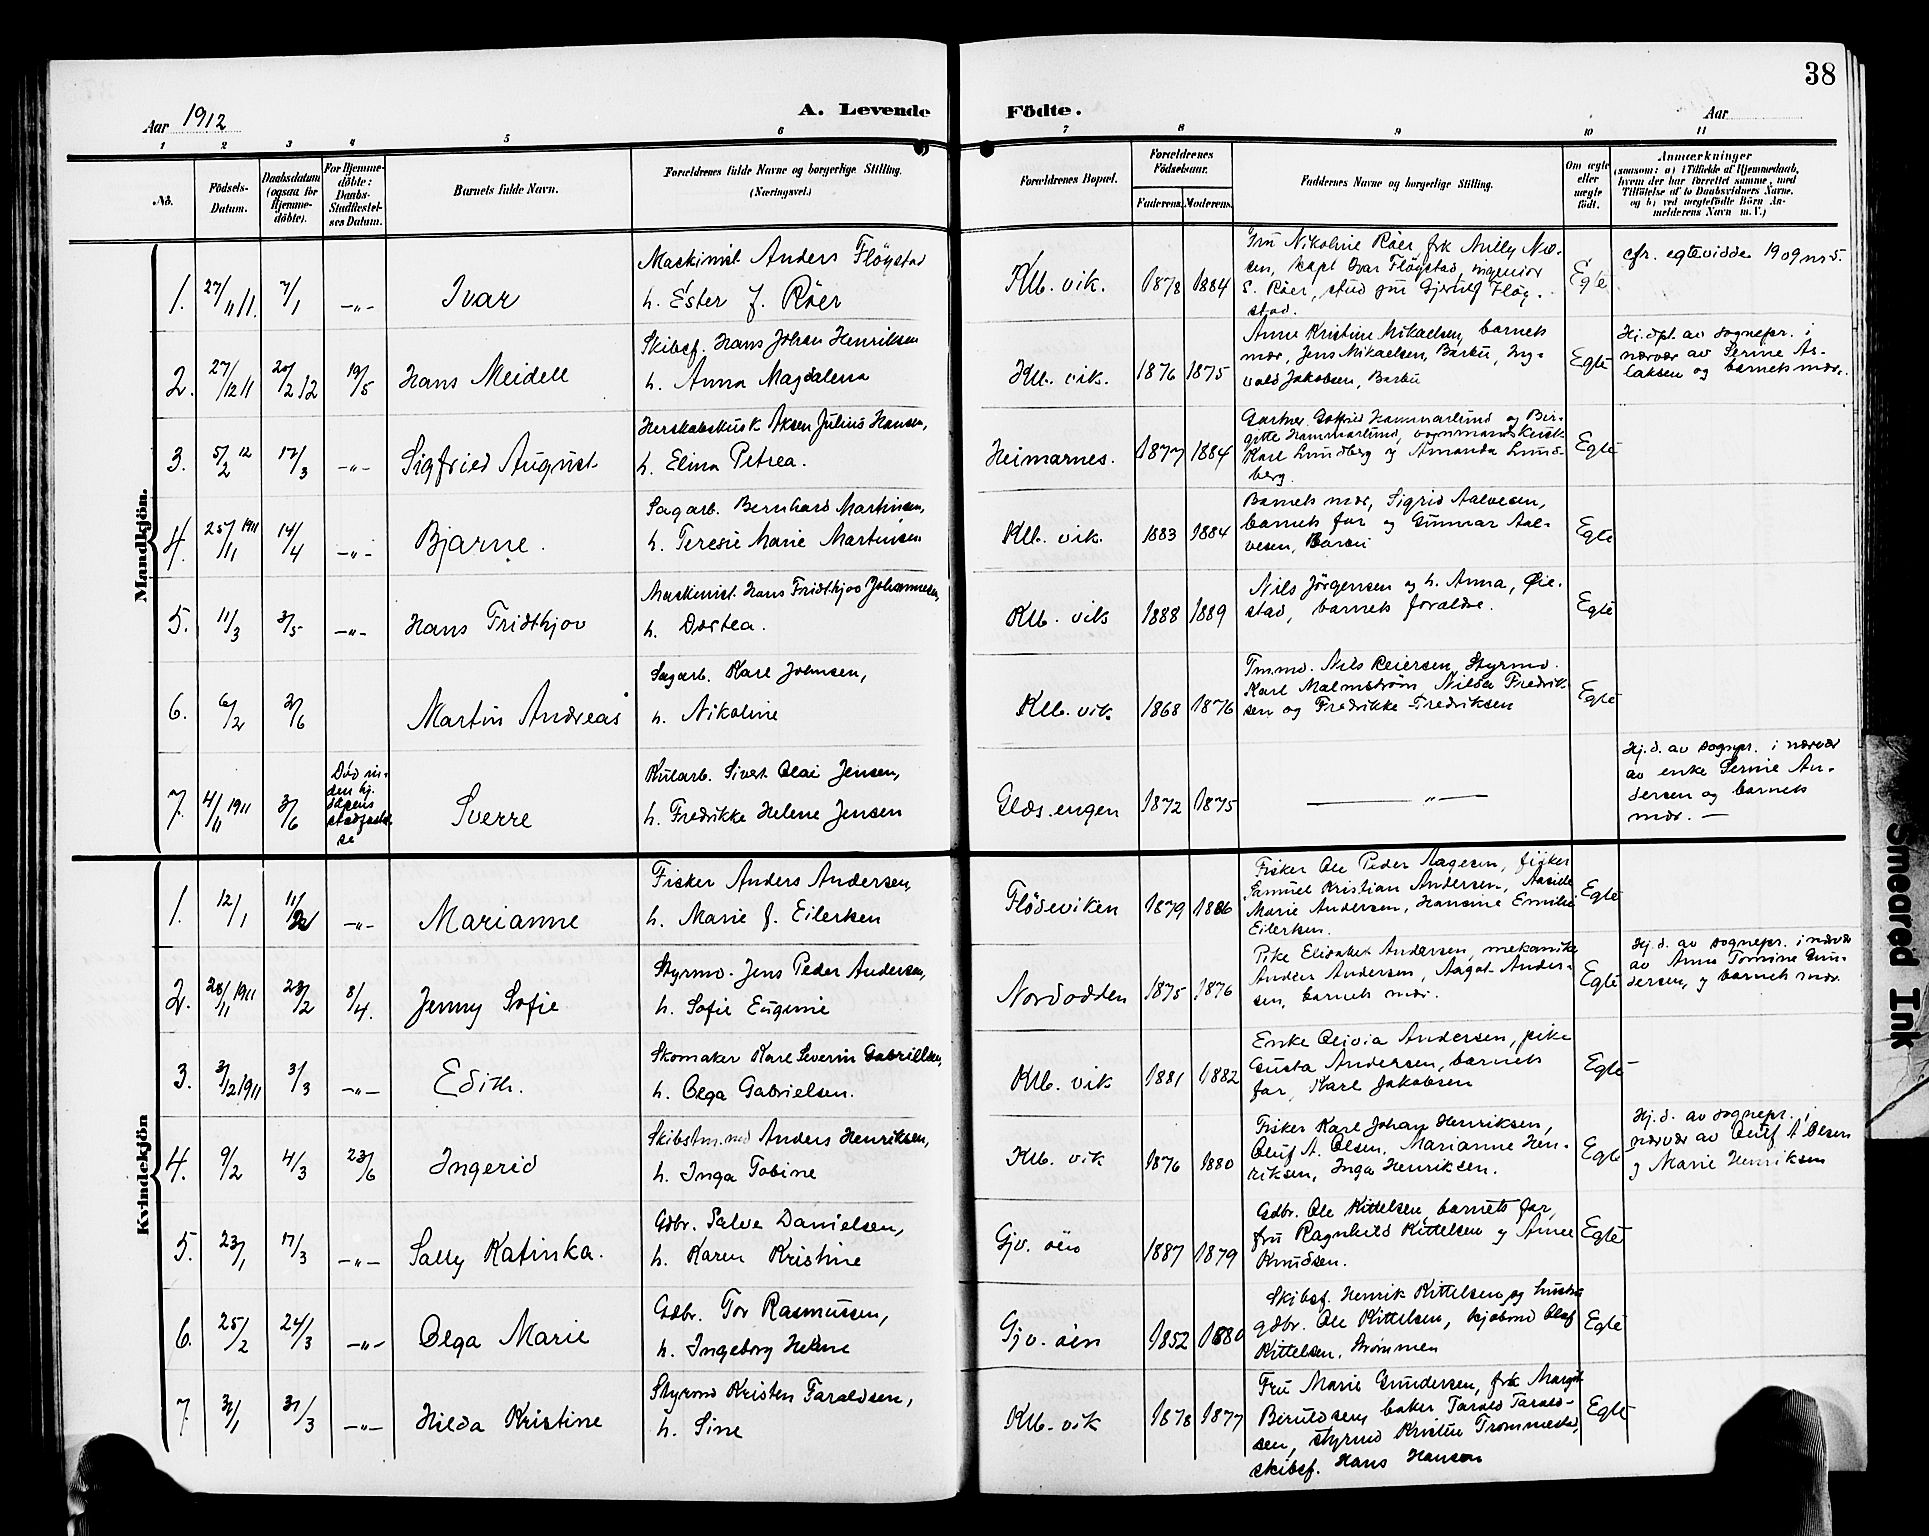 38
Aar 1912
A. Levende Födte.
Aar
1 2 3 4 5 6 7 8 9 10 11
No.
Födsels-
Datum.
Daabsdatum
(ogsaa for
Hjemme-
döbte).
For Hjemme-
döbte:
Daabs
Stadfæstel-
ses Datum.
Barnets fulde Navn.
Forældrenes fulde Navne og borgerlige Stilling.
(Næringsvei.)
Forældrenes Bopæl.
Forældrenes
Födselsaar.
Faderens. Moderens.
Faddernes Navne og borgerlige Stilling.
Om ægte
eller
uægte
födt.
Anmærkninger
(saasom: a) i Tilfælde af Hjemmedaab,
hvem der har forrettet samme, med
Tilföielse af to Daabsvidners Navne,
og b) ved uegtefödte Börn An-
melderens Navn m. V.)
Mandkjön.
1. 27/11 11. 7/1 -„- Ivar
Maskinist Anders Fløystad
h. Ester f. Röer
Klb. vik. 1878 1884
Fru Nikoline Röer, frk Milly Næ-
sen, kapt Ivar Fløgstad, ingeniør
S. Röer, stud jur Gjerulf Fløg-
stad.
Egte
cfr. egtevidde 1909 nr 5.
2. 27/12 11 20/2 12 19/5 Hans Meidell
Skibsf. Hans Johan Henriksen
h. Anna Magdalena
Klb. vik. 1876 1875
Anne Kristine Mikaelsen, barnets
mor, Jens Mikaelsen, Barbu, Ing-
vald Jakobsen, Barbu
Egte
Hj. dpt. av sognepr. i
nærvær av Serine As-
laksen og barnets mor.
3. 5/2 12 17/3 -„- Sigfried August
Herskabskusk Aksen Julius Hansen,
h. Elina Petrea.
Heimarnes. 1877 1884
Gartner Gotfried Hammarlund og Bir-
gitte Hammarlund,
Karl Lundberg og Amanda Lund-
berg.
Egte
4. 25/11 1911 14/4 -„- Bjarne.
Sagarb. Bernhard Martinsen,
h. Teresie Marie Martinsen
Klb. vik. 1883 1884
Barnets mor, Sigrid Aalvesen,
barnets far og Gunnar Aal-
vesen, Barbu
Egte
5. 11/3 2/5 -„- Hans Fridthjov
Maskinist Hans Fridthjov Johannesen,
h. Dortea.
Klb. vik 1888 1889
Nils Jörgensen og h. Anna, Øie-
stad, barnets forældre.
Egte
6. 6/2 2/6 Martin Andreas
Sagarb. Karl Johnsen,
h. Nikoline
Klb. vik. 1868 1876
Tmmd. Nils Reiersen, Styrmd.
Karl Malmstrøm, Nilsa Fredrik-
sen og Fredrikke Fredriksen
Egte
7. 4/11 1911 2/6
Död in-
den hj.
daapens
stadfæstel-
se
Sverre
Kularb. Sivert Olai Jensen,
h. Fredrikke Helene Jensen
Glds. engen 1872 1875
— „ —
Hj. d. av sognepr. i nærvær
av enke Serine An-
dersen og barnets
mor. —
Kvindekjön
1. 12/1 11/2 -„- Marianne
Fisker Anders Andersen,
h. Marie f. Eilertsen
Flödeviken 1879 1886
Fisker Ole Peder Aagesen, fisker
Samuel Kristian Andersen, Aasille
Marie Andersen, Hansine Emilie
Eilertsen.
Egte
2. 28/11 1911 28/2 8/4. Jenny Sofie
Styrmd. Jens Peder Andersen,
h. Sofie Eugenie
Nordodden 1875 1876
Pike Elisabet Andersen, mekanike
Anders Andersen, Aagot Ander-
sen, barnets mor.
Egte
Hj. d. av sognepr. i nærvær
av Anna Tomine Gun-
dersen, og barnets mor.
3. 3/12 1911 3/3 -„- Edith.
Skomaker Karl Severin Gabrielsen,
h. Olga Gabrielsen.
Klb. vik 1881 1882
Enke Olivia Andersen, pike
Gusta Andersen, barnets
far, Karl Jakobsen
Egte
4. 9/2 4/3 23/6 Ingerid
Skibstm.md Anders Henriksen,
h. Inga Tobine
Klb. vik 1876 1880
Fisker Karl Johan Henriksen,
Oluf A. Olsen, Marianne Hen-
riksen, Inga Henriksen.
Egte
Hj. d. av sognepr. i
nærvær av Oluf A Olsen
og Marie Henriksen
5. 23/1 17/3 -„- Sally Katinka.
Gdbr. Salve Danielsen,
h. Karen Kristine
Gjv. öen 1887 1879
Gdbr. Ole Kittelsen, barnets far,
fru Ragnhild Kittelsen og Anne
Knudsen.
Egte
6. 25/2 24/3 -„- Olga Marie
Gdbr. Tor Rasmussen,
h. Ingeborg Helene
Gjv. öen 1852 1880
Skibsf. Henrik Kittelsen og hustru
gdbr. Ole Kittelsen, kjøbmd Olaf
Kittelsen, Strømmen
Egte
7. 31/1 31/3 -„- Hilda Kristine
Styrmd Kristen Taraldsen,
h. Sine
Klb. vik 1878 1877
Fru Marie Gundersen, frk Margit
Beruldsen, baker Tarald Tarald-
sen, styrmd Kristen Trommestad,
skibsf. Hans Hanson
Egte
Smeared Ink